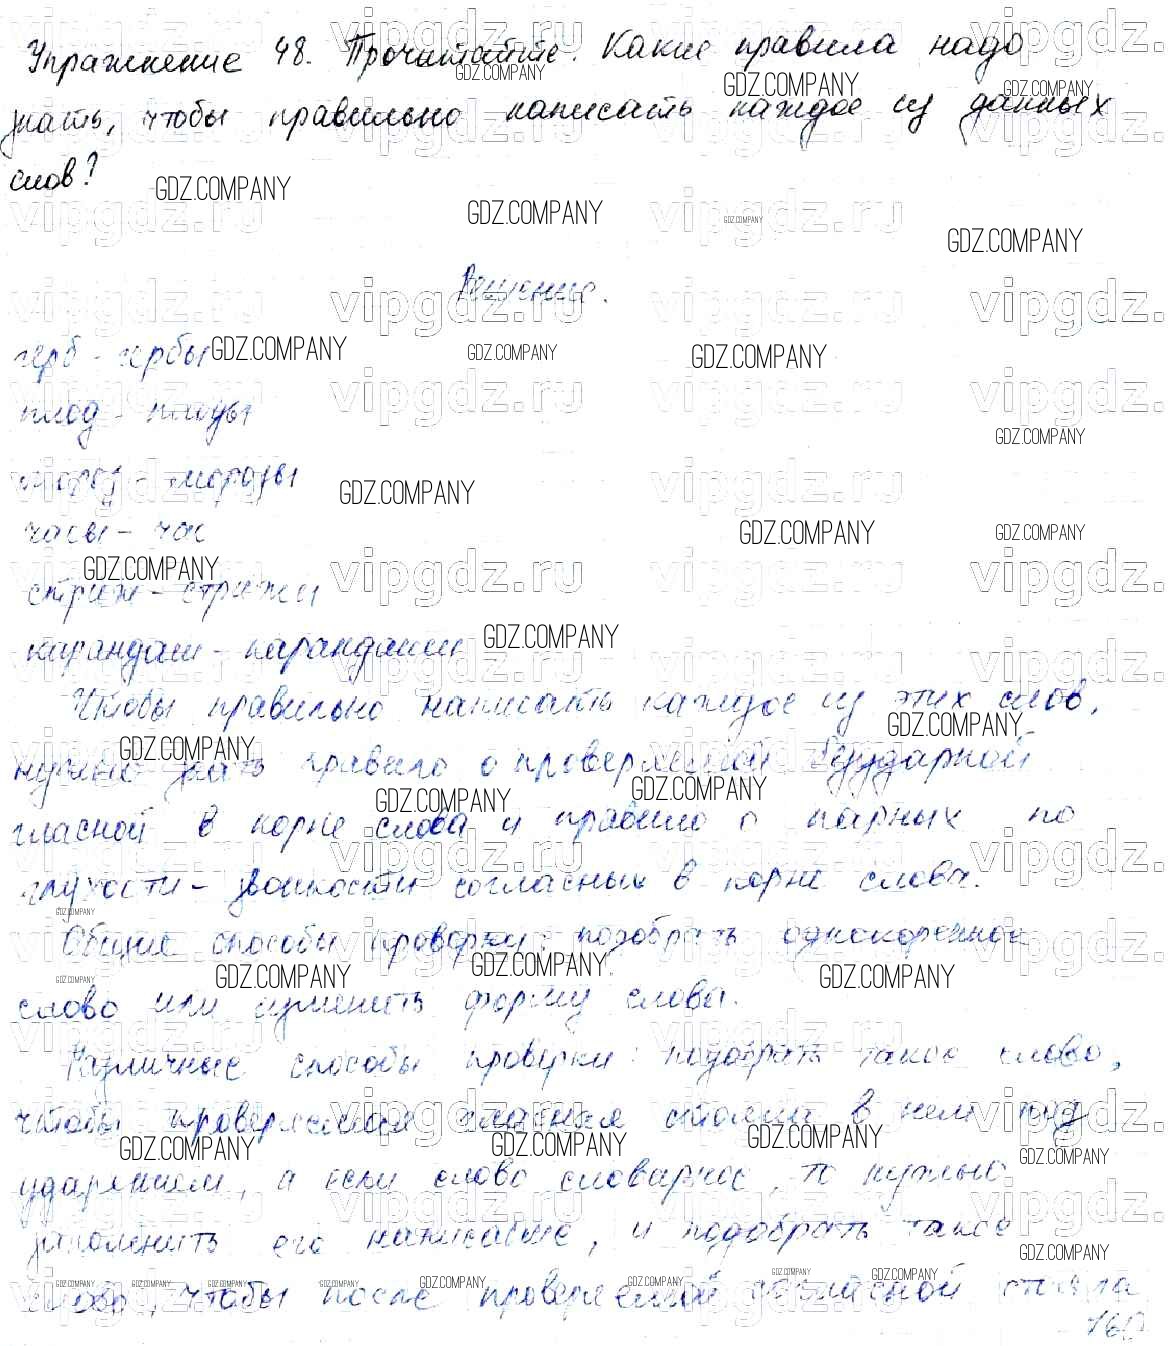 Упражнение 48. Прочитайте. Какие правила надо
знать, чтобы правильно написать каждое из данных
слов?
Решение.
герб - гербы
плод - плоды
мороз - морозы
часы - час
стриж - стрижи
карандаш - карандаши
Чтобы правильно написать каждое из этих слов,
нужно знать правило о проверяемой безударной
гласной в корне слова и правило о парных по
глухости - звонкости согласных в корне слова.
Общие способы проверки: подобрать однокоренное
слово или изменить форму слова.
Различные способы проверки: подобрать такое слово,
чтобы проверяемая гласная стояла в нем под
ударением, а если слово словарное, то нужно
запомнить его написание, и подобрать такое
слово, чтобы после проверяемой согласной стояла
vipgdz.ru
GDZ.COMPANY